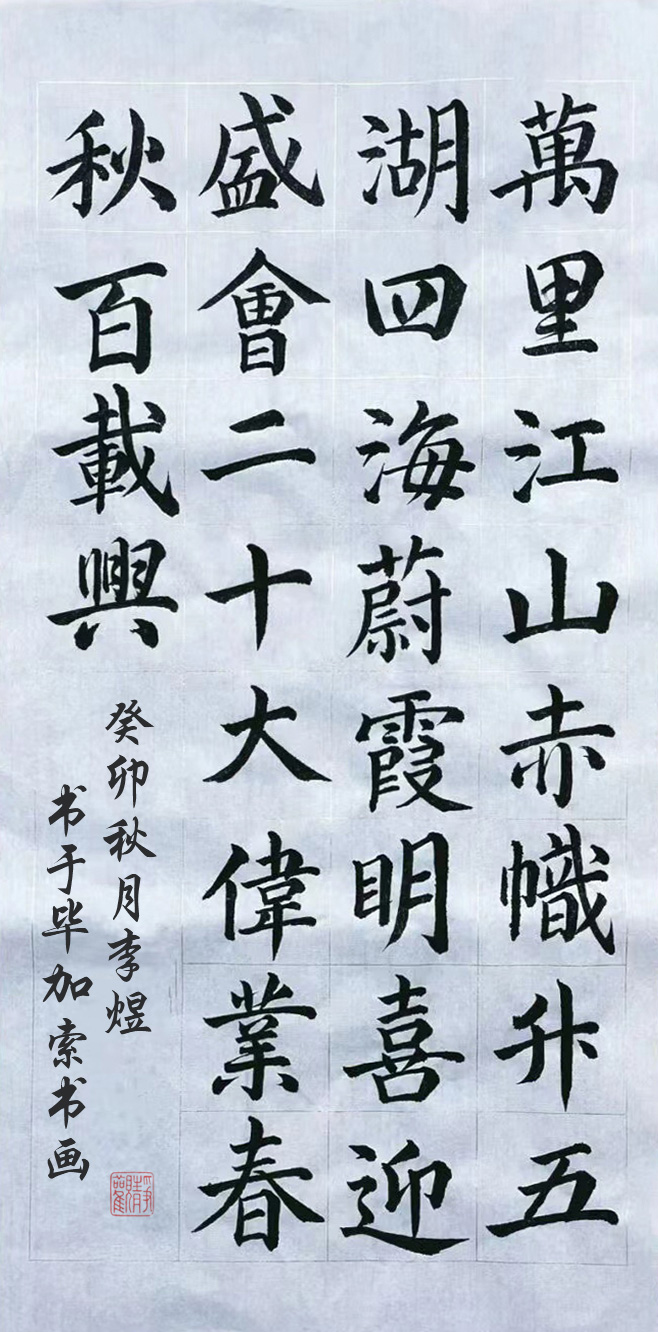 萬里江山赤幟升五
湖四海蔚霞明喜迎
盛會二十大偉業春
秋百載興
癸卯秋月李煜
书于毕加索书画
觀靜